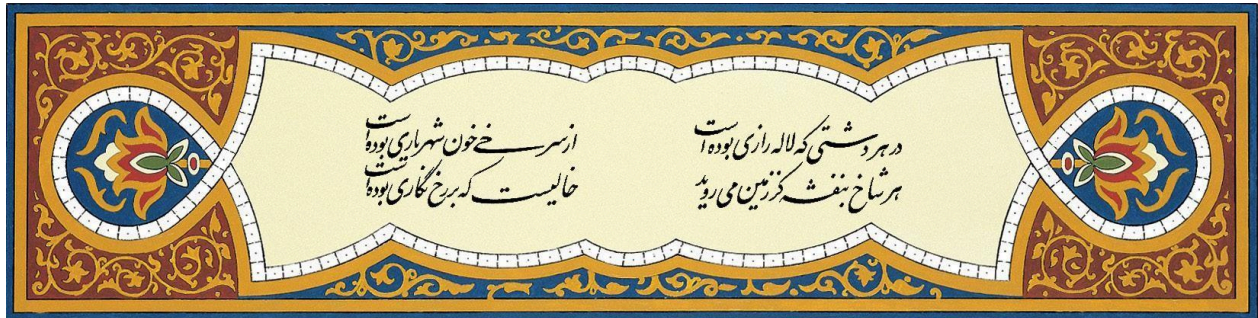 در هر دشتی که لاله زاری بوده است
از سرخی خون شهریاری بوده است
هر شاخ بنفشه کز زمین می روید
خالیست که بر رخ نگاری بوده است